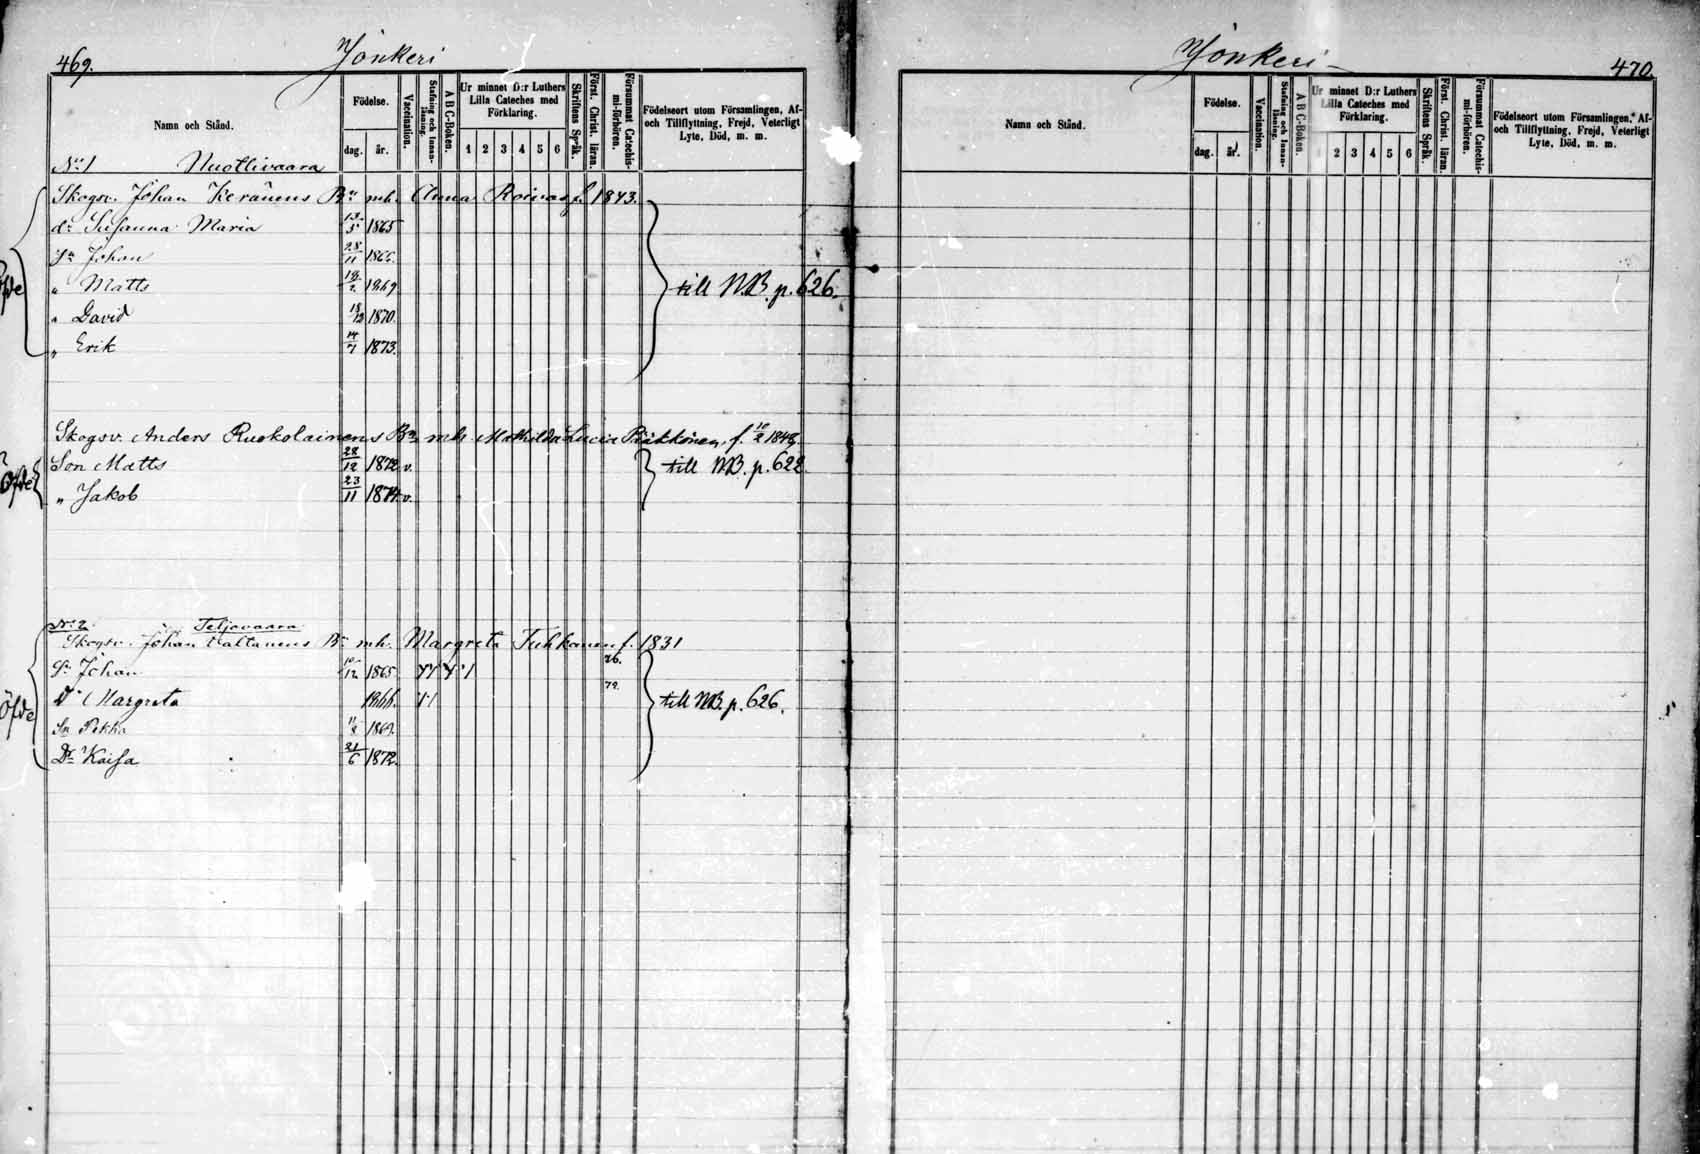 469. Jonkeri
Namn och Stånd.
Födelse.
dag. år.
Vaccination.
Stafning och Innanläsning.
A B C-Boken.
Ur minnet D:r Luthers Lilla Cateches med Förklaring.
1 2 3 4 5 6
Skriftens Språk.
Först. Christ. läran.
Försummat Catechismi-förhören.
Födelseort utom Församlingen, Af- och Tillflyttning, Frejd, Veterligt Lyte, Död, m. m.
No 1 Nuottivaara
Skogsv. Johan Keränens Bn mh. Anna Roivas f. 1843.
dr Susanna Maria 13/5 1865
Sn Johan 28/11 1866.
" Matts 1869
" David 18/12 1870.
" Erik 14/7 1873.
Öfde
till NB. p. 626.
Skogsv. Anders Ruokolainens Bn mh. Mathilda Lucia Pääkkönen, f. 10/2 1848.
Son Matts 28/12 1872 v.
" Jakob 23/11 1874 v.
Öfde
till NB. p. 622
No 2 Teljovaara
Skogsv. Johan Valtanens Bn mh. Margreta Tuhkanen f. 1831
Sn Johan 10/12 1865 76.
Dr Margreta 1866. 72.
Sn Pekka 11/8 1869.
Dr Kaisa 21/6 1872.
Öfde
till NB p. 626.
Jonkeri 470.
Namn och Stånd.
Födelse.
dag. år.
Vaccination.
Stafning och Innanläsning.
A B C-Boken.
Ur minnet D:r Luthers Lilla Cateches med Förklaring.
1 2 3 4 5 6
Skriftens Språk.
Först. Christ. läran.
Försummat Catechismi-förhören.
Födelseort utom Församlingen, Af- och Tillflyttning, Frejd, Veterligt Lyte, Död, m. m.